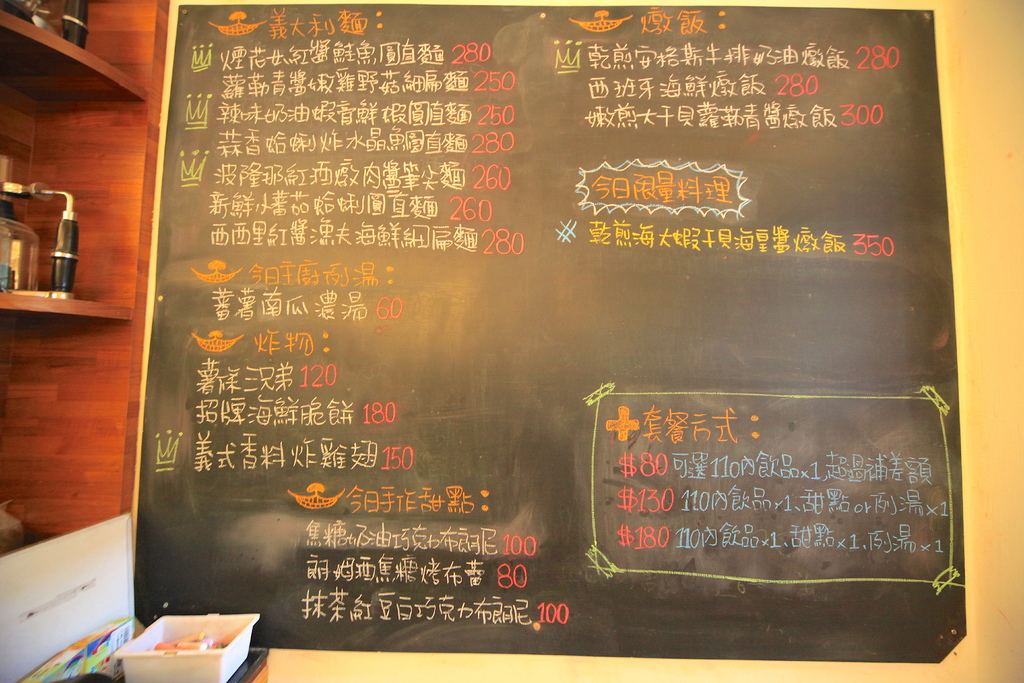 義大利麵：
煙花女紅醬鮭魚圓直麵 280
蘿勒青醬嫩雞野菇細扁麵 250
辣味奶油蝦音鮮蝦圓直麵 250
蒜香蛤蜊炸水晶魚圓直麵 280
波隆那紅酒燉肉醬筆尖麵 260
新鮮小蕃茄蛤蜊圓直麵 260
西西里紅醬漁夫海鮮細扁麵 280
今日主廚例湯：
蕃薯南瓜濃湯 60
炸物：
薯條三兄弟 120
招牌海鮮脆餅 180
義式香料炸雞翅 150
今日手作甜點：
焦糖奶油巧克力布朗尼 100
朗姆酒焦糖烤布蕾 80
抹茶紅豆白巧克力布朗尼 100
燉飯：
乾煎安格斯牛排奶油燉飯 280
西班牙海鮮燉飯 280
嫩煎大干貝蘿勒青醬燉飯 300
今日限量料理
乾煎海大蝦干貝海皇醬燉飯 350
套餐方式：
$80 可選110內飲品x1,超過補差額
$130 110內飲品x1、甜點or例湯x1
$180 110內飲品x1、甜點x1、例湯x1